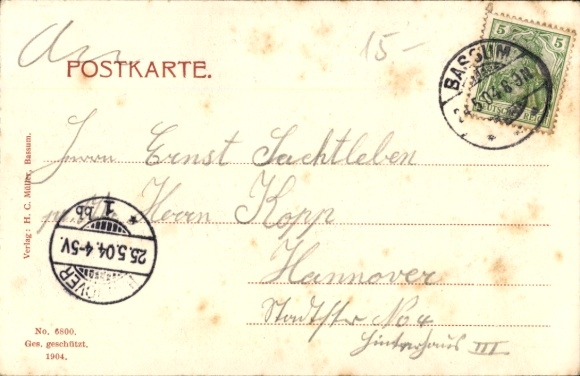 15-
POSTKARTE.
5 5
BASSUM
Herrn Ernst Sachtleben
Herrn Kopp
Hannover
Stadtstr No 4
Hinterhaus III
1
bb
25.5.04.4-5V.
HANNOVER
Verlag: H. C. Müller, Bassum.
No. 6800.
Ges. geschützt.
1904.